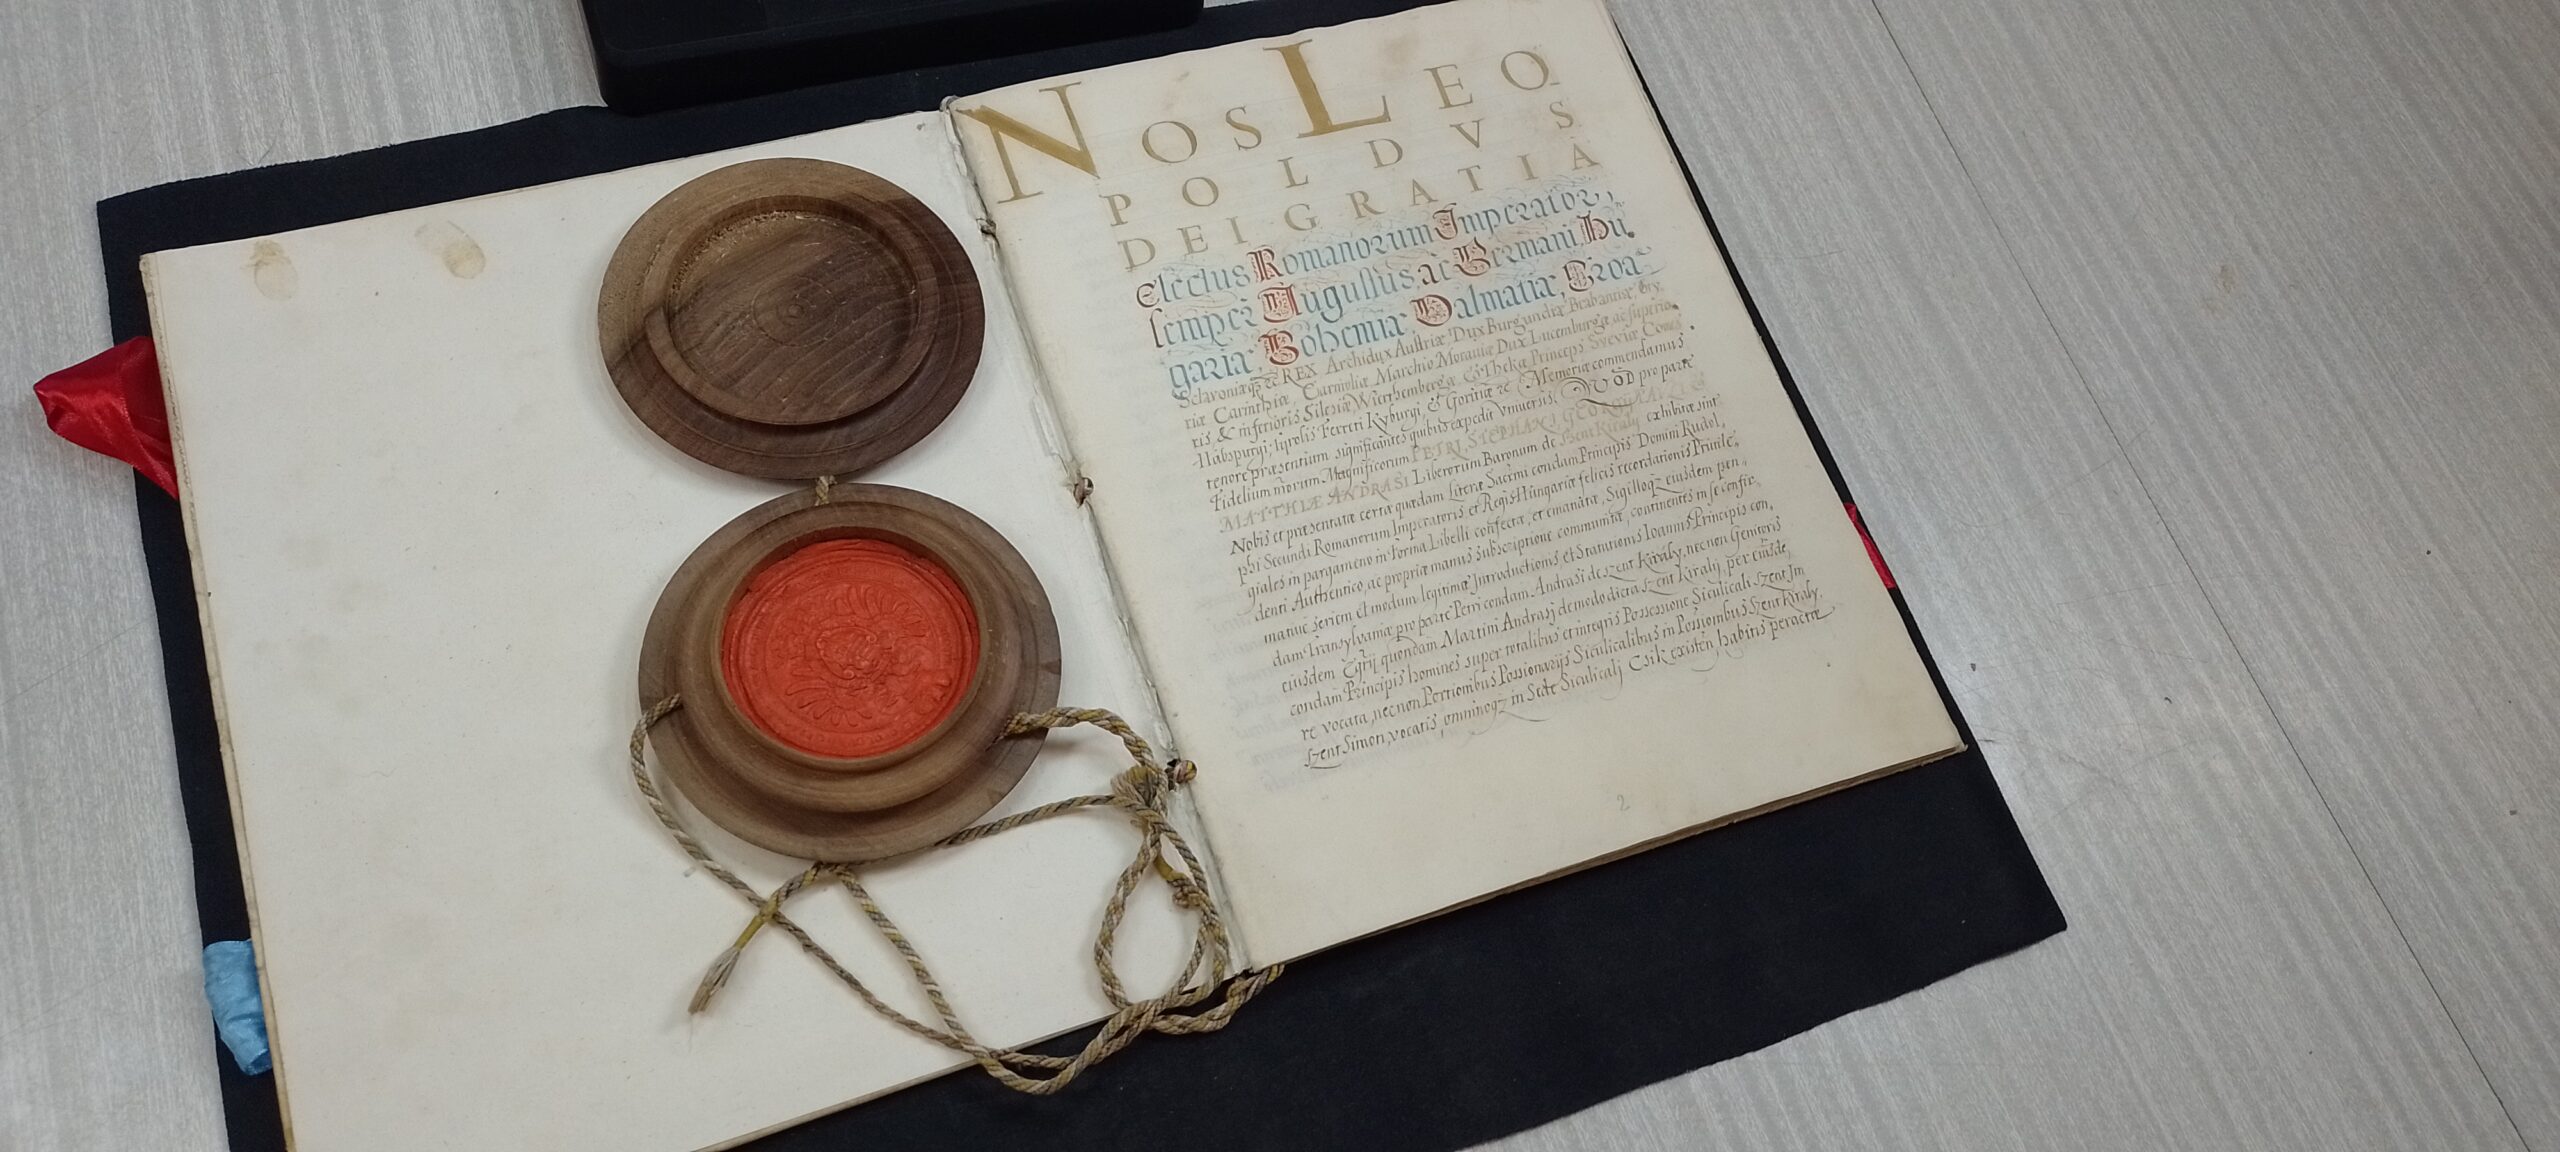 NOS LEO
POLDVS
DEI GRATIA
Electus Romanorum Imperator,
semper Augustus, ac Germaniæ, Hu
gariæ, Bohemiæ, Dalmatiæ, Croa
Sclavoniæq; REX Archidux Austriæ, Dux Burgundiæ Brabantiæ, Sty
riæ Carinthiæ, Carnioliæ Marchio Moraviæ Dux Lucemburgæ ac superio
ris, & inferioris Silesiæ, Wierthembergæ & Thekæ Princeps Sveviæ Comes
Habspurgi; Tyrolis Ferreti Kyburgi, & Goritiæ Memoriæ commendamus
tenore præsentium significantes quibus expedit vniuersis. QVOD pro parte
Fidelium nrorum Magnificorum PETRI, STEPHANI, GEORGII
MATTHIÆ ANDRASI Liberorum Baronum de Szent Kiralij exhibitæ sint
Nobis et præsentatæ certæ quædam Literæ Sacrmi condam Principis Domini Rudol,
phi Secundi Romanorum Imperatoris et Regis Hungariæ felicis recordationis Priuile,
giales in pargameno in forma Libelli confectæ, et emanatæ, Sigilloqz eiusdem pen,
denti Authentico, ac propriæ manus subscriptione communitæ, continentes in se confir,
matiue seriem et modum legitimæ Introductionis et Statutionis Ioannis Principis con,
dam Transylvaniæ pro parte Petri condam Andrasi de szent Kiralÿ, necnon Genitoris
eiusdem Egrij quondam Martini Andrasj de modo dicta szent Kiralij, per eiusde,
condam Principis homines super totalibus et integris Possessione Siculicali szent Im
re vocata, necnon Portionibus Possionarijs Siculicalibus in Possionibus Szent Kiralÿ,
szent Simon, vocatis, omninoqz in Sede Siculicalj Csik existen habitis peractæ
2